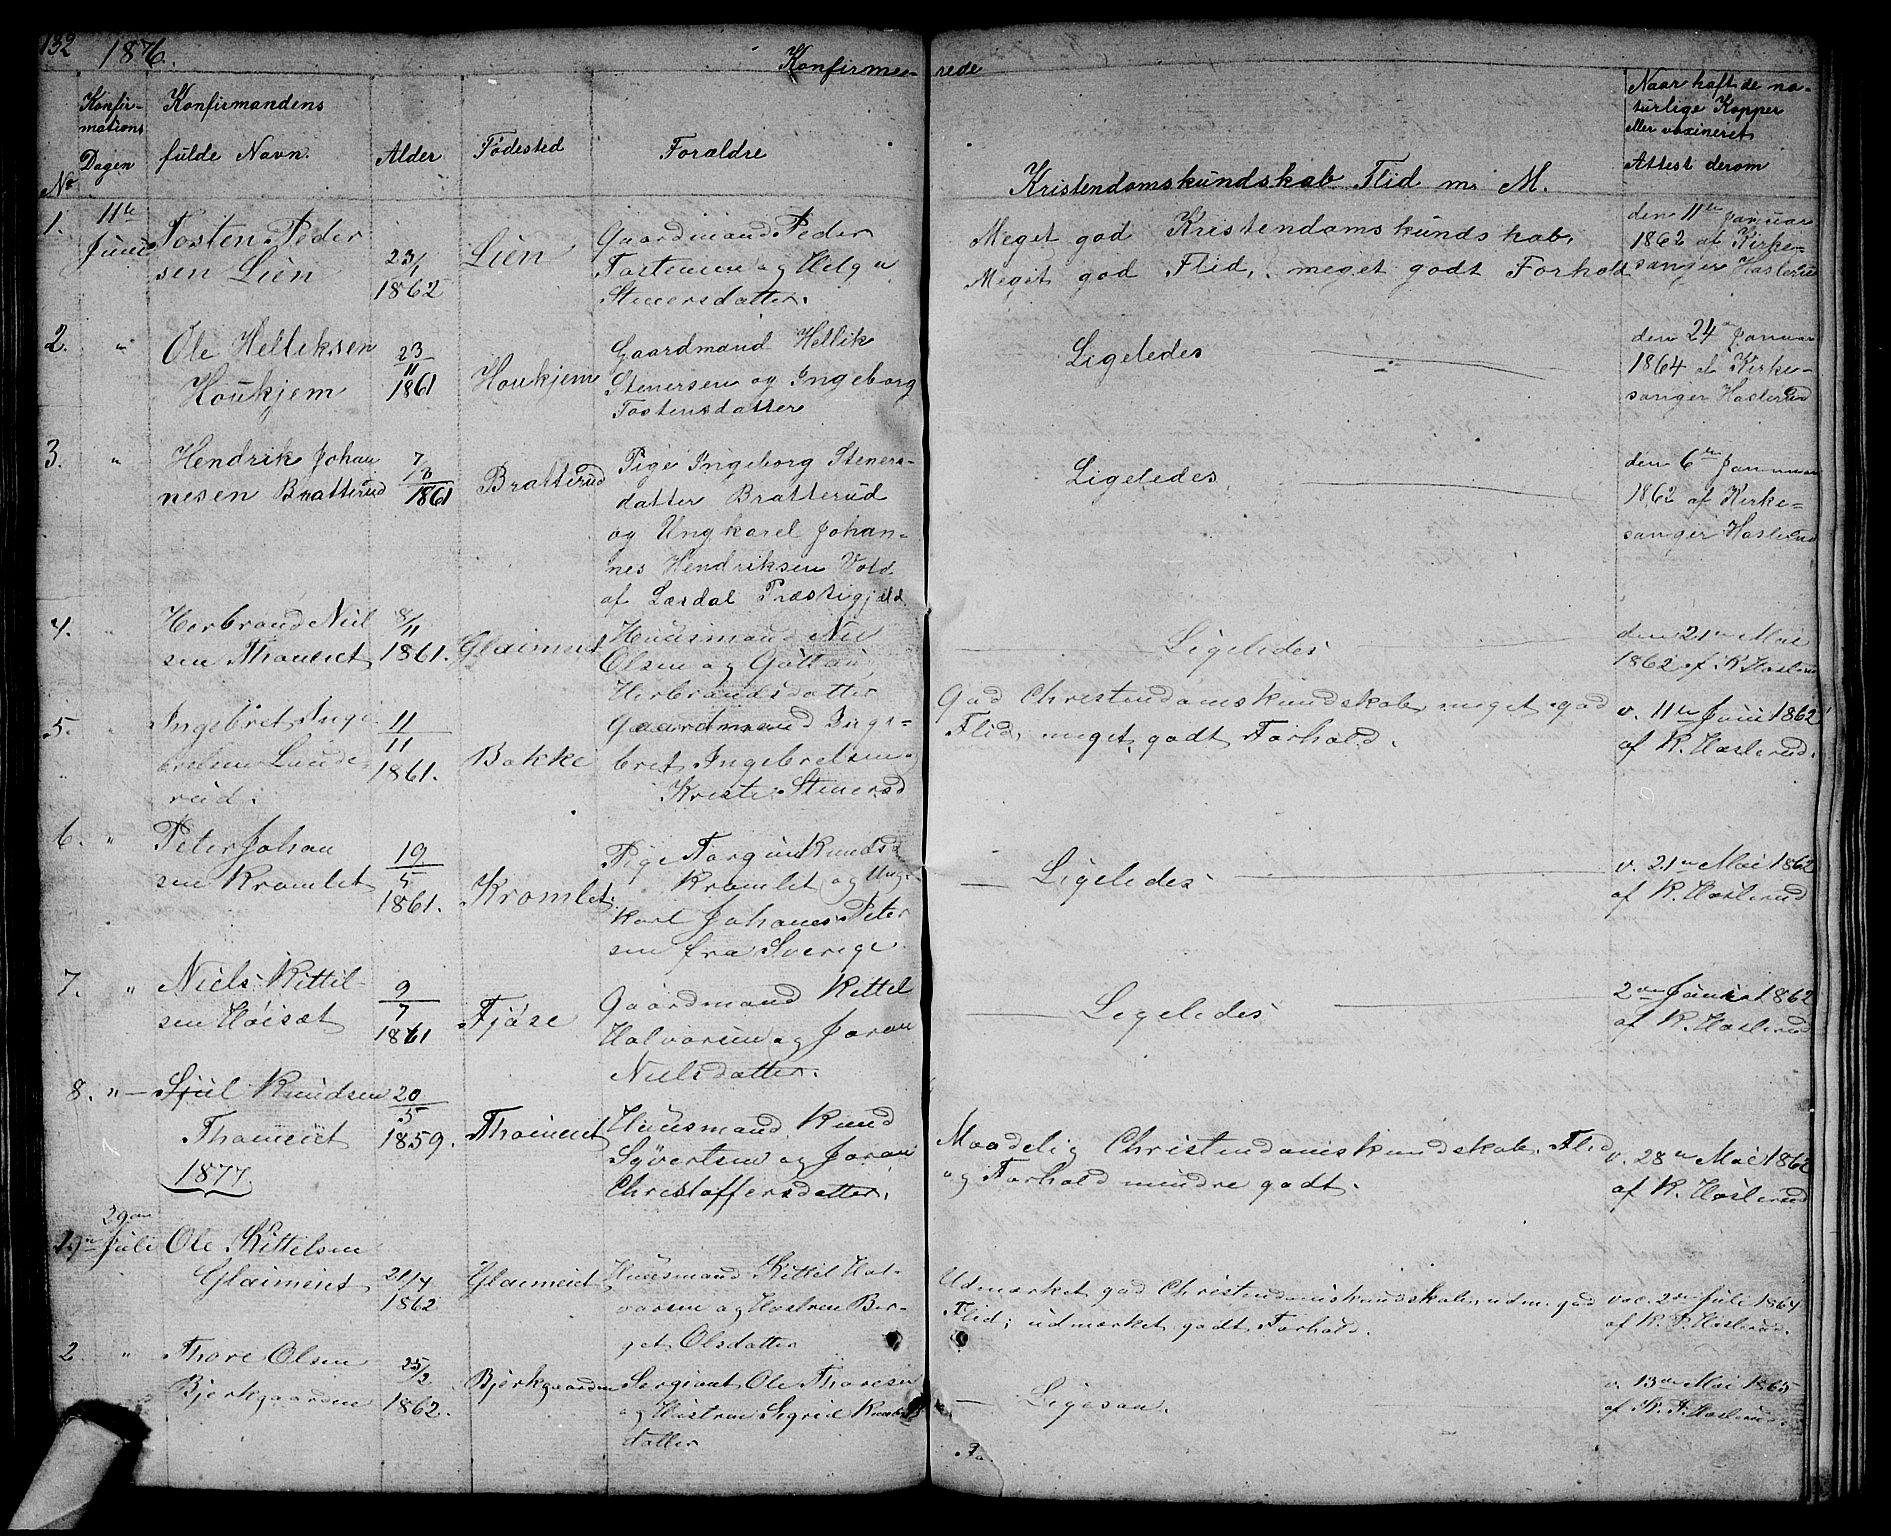 132 1876. Konfirme- rede
No
Konfir-
mations
Dagen
Konfirmandens
fulde Navn.
Alder
Födested
Forældre
Kristendomskundskab Flid m. M.
Naar haft de na-
turlige Kopper
eller vaxineret
Attest derom
1.
11te
Juni
Tosten Peder
sen Lien
23/1
1862
Lien
Gaardmand Peder
Tostensen og Helga
Stenersdatter.
Meget god Kristendomskundskab,
Meget god Flid, meget godt Forhold
den 11te Januar
1862 af Kirke-
sanger Haslerud
2.
"
Ole Helliksen
Houkjem
23
11
1861
Houkjem
Gaardmand Hellik
Stenersen og Ingeborg
Tostensdatter
Ligeledes
den 24de Januar
1864 af Kirke-
sanger Haslerud
3.
"
Hendrik Johan
nesen Bratterud
7/3
1861
Bratterud
Pige Ingeborg Steners-
datter Bratterud
og Ungkarel Johan-
nes Hendriksen Vold
af Lærdal Præstigjæld
Ligeledes
den 6te Januar
1862 af Kirke-
sanger Haslerud
4.
"
Herbrand Niel
sen Thoneiet
8/11
1861.
Glaimeiet
Huusmand Nil
Olsen og
Herbrandsdatter
Ligeledes
den 21de Mai
1862 af K. Haslerud
5.
"
Ingebret Inge
bretsen Lunde
rud.
11
11
1861.
Bakke
Gaardmand Inge-
bret Ingebretsen og
Kristi Stenersd
God Christendomskundskab, meget god
Flid, meget godt Forhold.
v. 11te Juni 1862
af K. Haslerud.
6.
"
Peter Johan
sen Kromlet
19
5
1861.
Kromlet
Pige Torgun Knuds
Kromlet og Ung-
karl Johanes Peter
sen fra Sverige
Ligeledes
v. 21de Mai 1862
af K. Haslerud
7.
"
Niels Kittil-
sen Höisæt
9
7
1861
Fjöse
Gaardmand Kittel
Halvorsen og Joran
Nielsdatter.
Ligeledes
2den Januar 1862
af K. Haslerud
8.
"
Sjul Knudsen
Thoneiet
20
5
1859.
Thoneiet
Huusmand Knud
Syvertsen og Joran
Christoffersdatter.
Maadelig Christendomskundskab, Flid
og Forhold mindre godt.
v. 28de Mai 1862
af K. Haslerud
1877
1.
29de
Juli
Ole Kittelsen
Glaimeiet
21/4
1862
Glaimeiet
Huusmand Kittil Hal-
vorsen og Hustren Ber-
get Olsdatter
Udmærket god Christendomskundskab, udm. god
Flid, udmærket godt Forhold.
vac. 2den Juli 1864
af K. P. Haslerud.
2
"
Thore Olsen
Bjerkgaarden
25/2
1862.
Bjerkgaarden
Sergiant Ole Thoresen
og Hustren Sigrid Knuds
datter
Ligesaa.
v. 13de Mai 1865
af K. P. Haslerud.